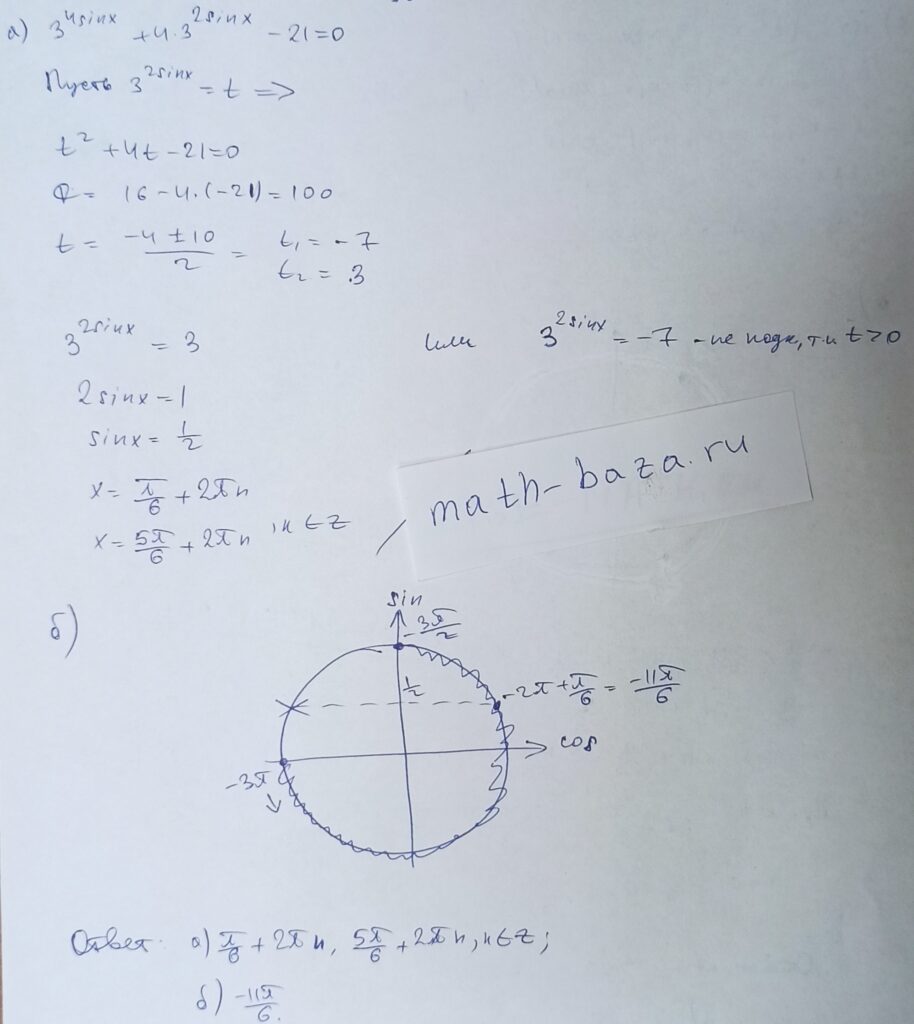 а) 3^{4sinx} + 4·3^{2sinx} - 21 = 0
Пусть 3^{2sinx} = t =>
t² + 4t - 21 = 0
D = 16 - 4·(-21) = 100
t = \frac{-4 ± 10}{2} = t₁ = -7
t₂ = 3
3^{2sinx} = 3 или 3^{2sinx} = -7 - не подх, т.к t > 0
2sinx = 1
sinx = \frac{1}{2}
x = \frac{π}{6} + 2πn
x = \frac{5π}{6} + 2πn , n ∈ Z
math-baza.ru
б)
sin
-\frac{3π}{2}
\frac{1}{2}
-2π + \frac{π}{6} = \frac{-11π}{6}
cos
-3π
Ответ: а) \frac{π}{6} + 2πn, \frac{5π}{6} + 2πn, n ∈ Z;
б) \frac{-11π}{6}.